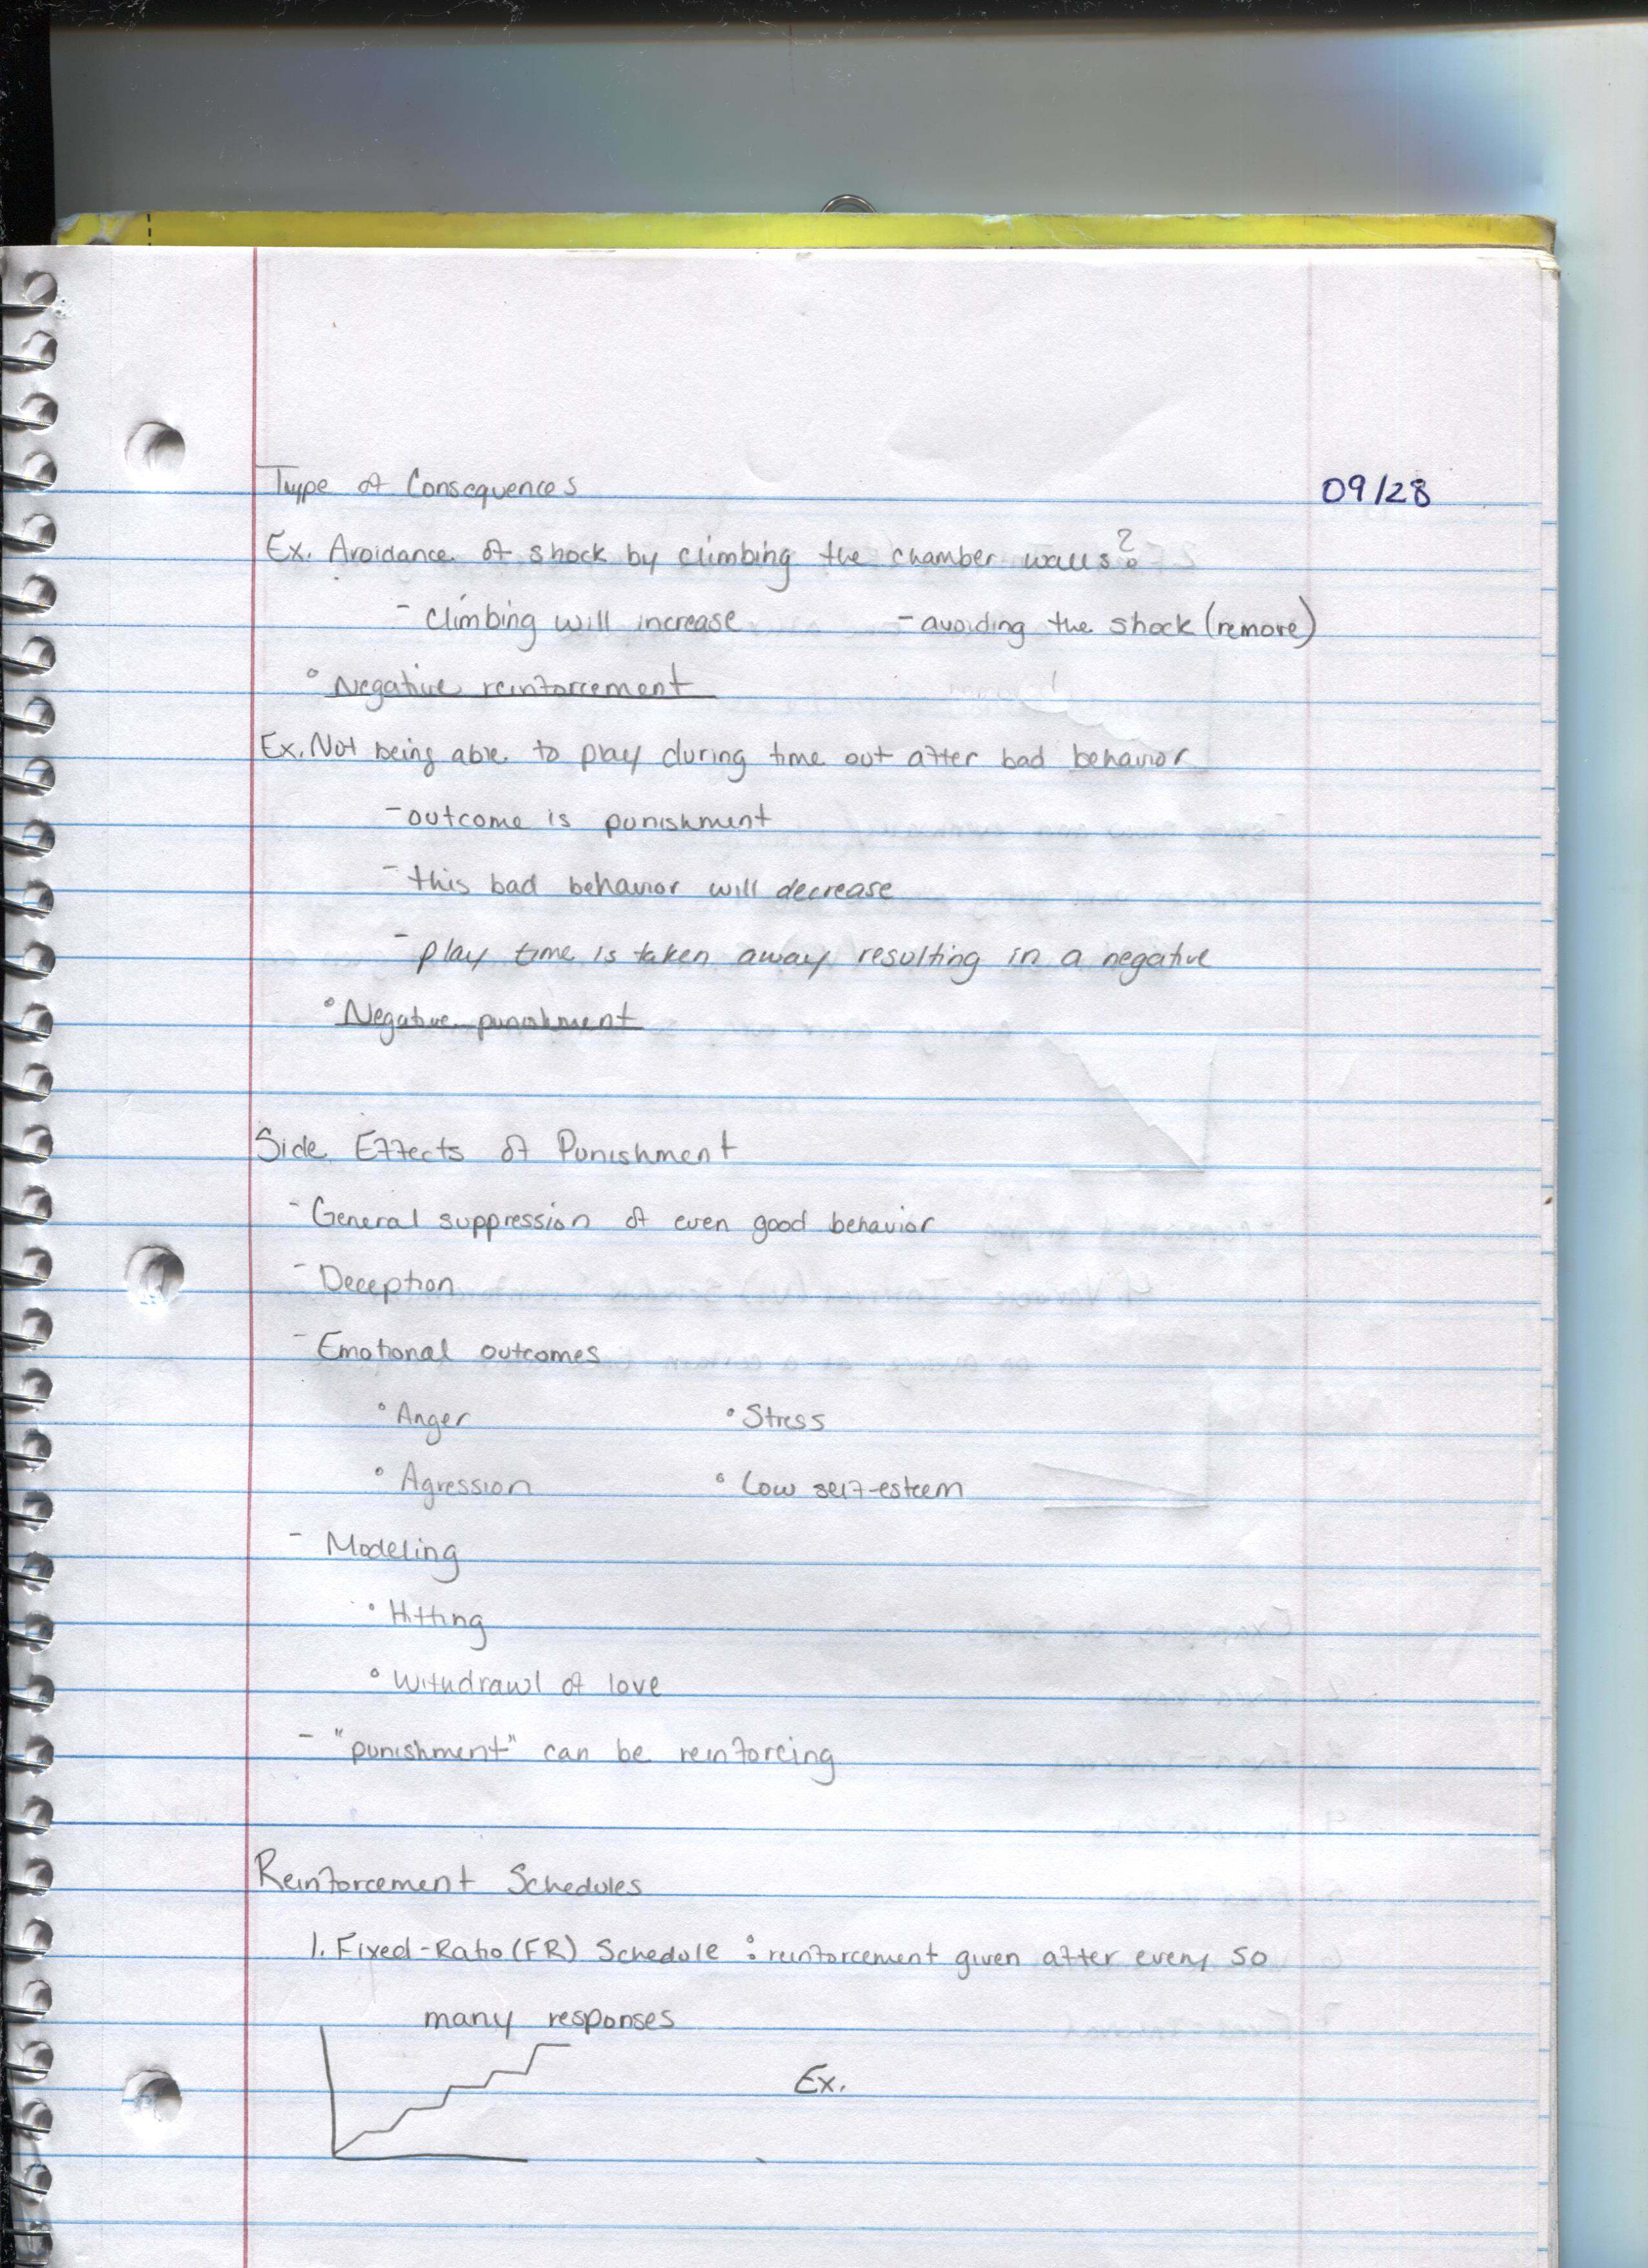 Type of Consequences 09/28
Ex. Avoidance of shock by climbing the chamber walls?
- climbing will increase - avoiding the shock (remove)
° Negative reinforcement
Ex. Not being able to play during time out after bad behavior
- outcome is punishment
- this bad behavior will decrease
- play time is taken away resulting in a negative
° Negative punishment
Side Effects of Punishment
- General suppression of even good behavior
- Deception
- Emotional outcomes
° Anger ° Stress
° Agression ° Low self-esteem
- Modeling
° Hitting
° Withdrawl of love
- "punishment" can be reinforcing
Reinforcement Schedules
1. Fixed-Ratio (FR) Schedule : reinforcement given after every so
many responses
Ex.